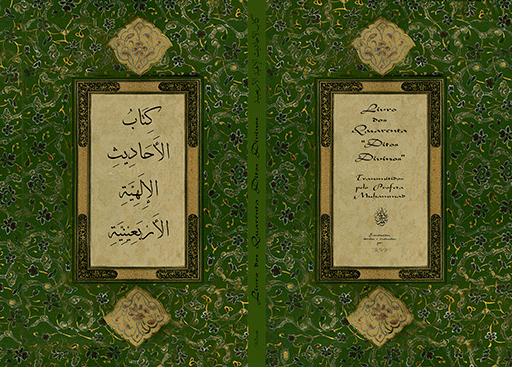 كِتَابُ
الأَحَادِيثِ
الإِلَهِيَّةِ
الأَرْبَعِينِيَّةِ
Livro dos Quarenta Ditos Divinos
Livro
dos
Quarenta
"Ditos
Divinos"
Transmitidos
pelo Profeta
Muhammad